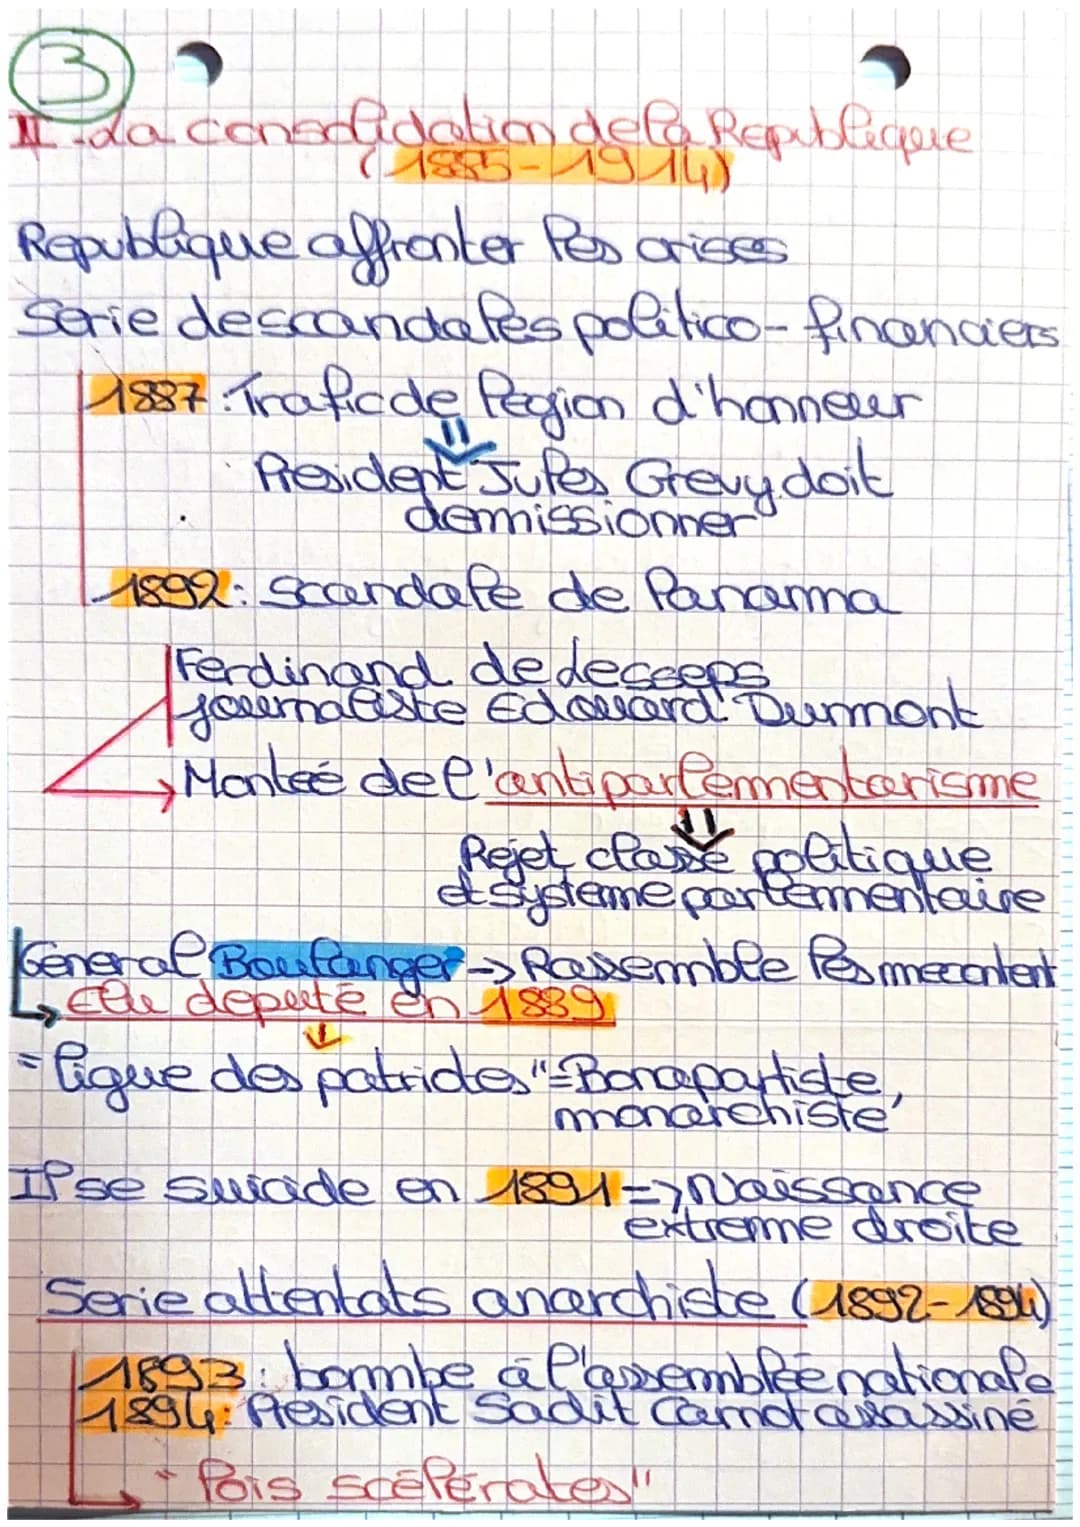 3
II - La consolidation de la Republique
(1885-1914)
Republique affronter les crises
Serie de scandales politico-financiers
1887 : Trafic de légion d'honneur
⇓
President Jules Grevy doit
demissionner
1892 : scandale de Panama
Ferdinand de desseps
journaliste Edouard Durmont
→ Monteé de l'antiparlementarisme
⇓
Rejet classe politique
et systeme parlementaire
General Boulanger → Rassemble les mecontent
↳ Elu deputé en 1889
↓
= ligue des patriotes" = Bonapartiste,
monarchiste
Il se suicide en 1891 => Naissance
extreme droite
Serie attentats anarchiste (1892-1894)
1893 : bombe à l'assemblée nationale
1894 : President Sadit Carnot assassiné
"lois scélérates"